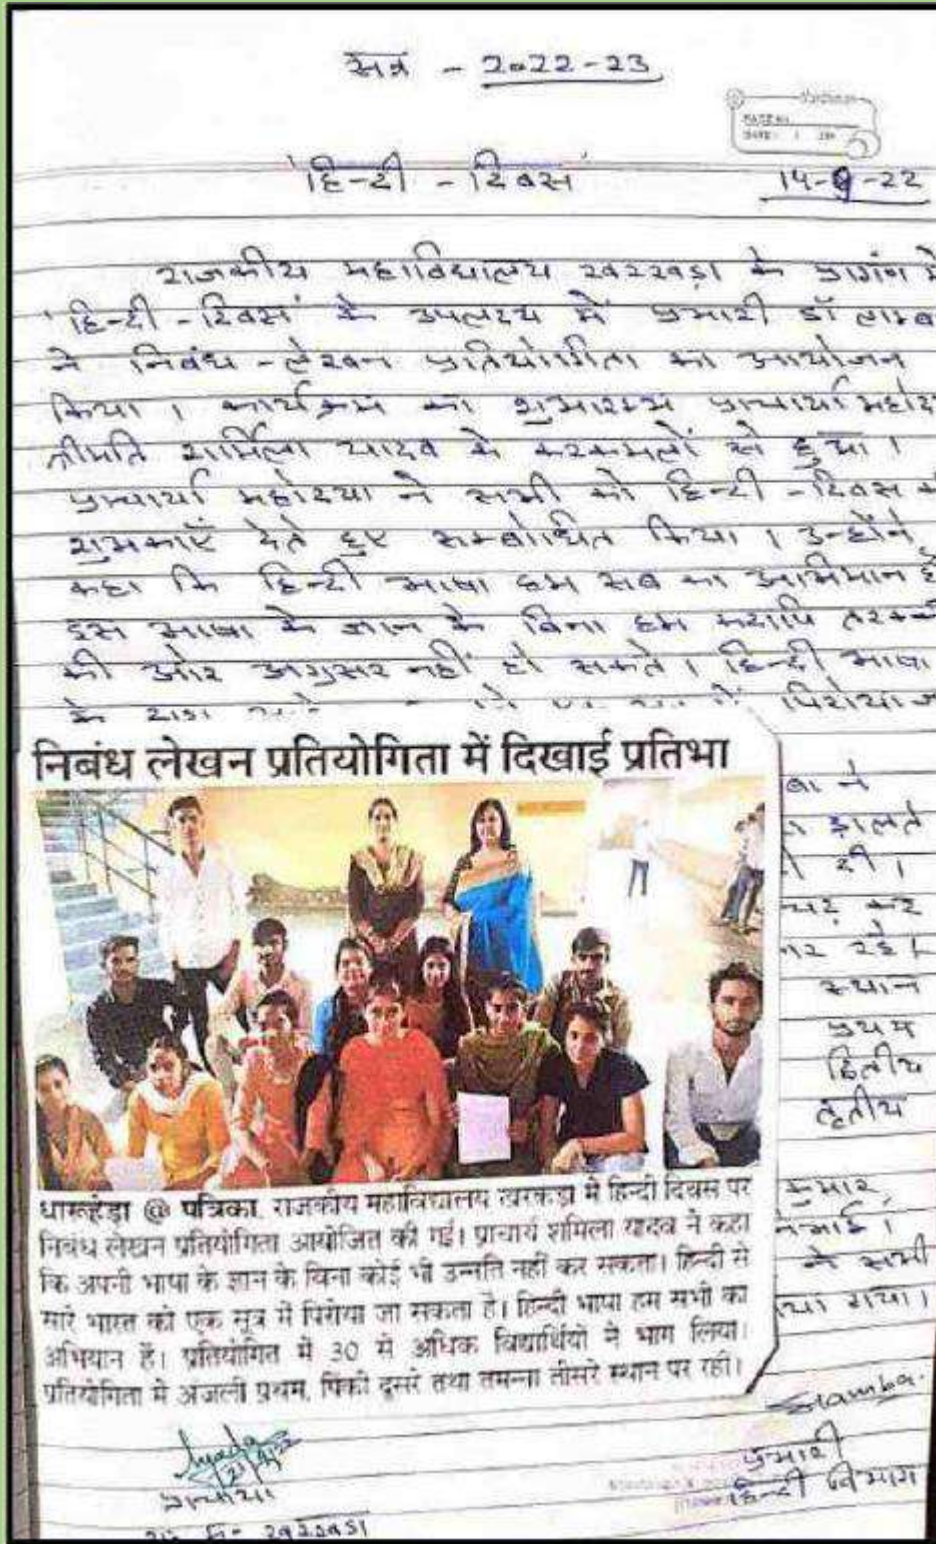 सत्र - 2022-23
हिन्दी - दिवस
14-9-22
राजकीय महाविद्यालय खरखड़ा के प्रागंण में
'हिन्दी - दिवस' के उपलक्ष्य में प्रभारी डॉ लाम्बा
ने निबंध - लेखन प्रतियोगिता का आयोजन
किया । कार्यक्रम का शुभारम्भ प्राचार्या महोदया
श्रीमति शर्मिला यादव के करकमलों से हुआ ।
प्राचार्या महोदया ने सभी को हिन्दी - दिवस की
शुभकाएँ देते हुए सम्बोधित किया । उन्होंने
कहा कि हिन्दी भाषा हम सब का अभिमान है
इस भाषा के ज्ञान के बिना हम कदापि तरक्की
की ओर अग्रसर नहीं हो सकते । हिन्दी भाषा
के पिरोया
निबंध लेखन प्रतियोगिता में दिखाई प्रतिभा
धारूहेड़ा @ पत्रिका. राजकीय महाविद्यालय खरकड़ा में हिन्दी दिवस पर
निबंध लेखन प्रतियोगिता आयोजित की गई। प्राचार्य शर्मिला यादव ने कहा
कि अपनी भाषा के ज्ञान के बिना कोई भी उन्नति नहीं कर सकता। हिन्दी से
सारे भारत को एक सूत्र में पिरोया जा सकता है। हिन्दी भाषा हम सभी का
अभियान हैं। प्रतियोगित में 30 से अधिक विद्यार्थियों ने भाग लिया।
प्रतियोगिता में अंजली प्रथम, पिंकी दूसरे तथा तमन्ना तीसरे स्थान पर रही।
बा ने
डालते
दी ।
कर
रहे ।
स्थान
प्रथम
द्वितीय
तृतीय
कुमार
ने सभी
गया ।
प्राचार्या
Lamba
प्रभारी
हिन्दी विभाग